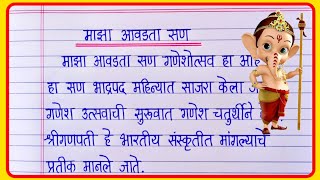 माझा आवडता सण
माझा आवडता सण गणेशोत्सव हा
हा सण भाद्रपद महिन्यात साजरा केला
गणेश उत्सवाची सुरूवात गणेश चतुर्थीने
श्रीगणपती हे भारतीय संस्कृतीत मांगल्याचे
प्रतीक मानले जाते.